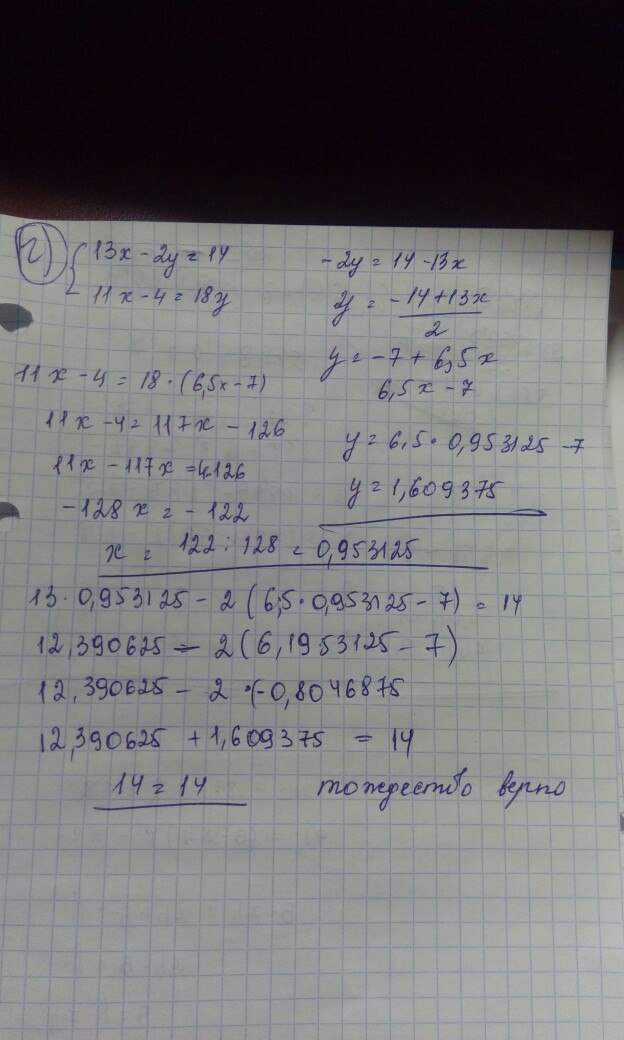 г) { 13x - 2y = 14
11x - 4 = 18y
-2y = 14 - 13x
y = -14 + 13x / 2
y = -7 + 6,5x
6,5x - 7
11x - 4 = 18 · (6,5x - 7)
11x - 4 = 117x - 126
11x - 117x = 4-126
-128x = -122
x = 122 : 128 = 0,953125
y = 6,5 · 0,953125 - 7
y = 1,609375
13 · 0,953125 - 2 (6,5 · 0,953125 - 7) = 14
12,390625 - 2 (6,1953125 - 7)
12,390625 - 2 · (-0,8046875
12,390625 + 1,609375 = 14
14 = 14 тождество верно